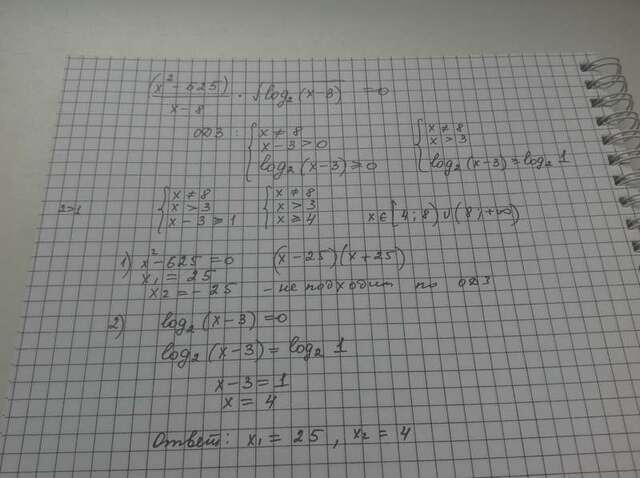 (x² - 625) / (x - 8) · √log₂(x - 3) = 0
ОДЗ : { x ≠ 8 { x ≠ 8
x - 3 > 0 x > 3
log₂(x - 3) ≥ 0 log₂(x - 3) ≥ log₂ 1
2>1 { x ≠ 8 { x ≠ 8
x > 3 x > 3 x ∈ [4; 8) ∪ (8; +∞)
x - 3 ≥ 1 x ≥ 4
1) x² - 625 = 0 (x - 25)(x + 25)
x₁ = 25
x₂ = - 25 - не подходит по ОДЗ
2) log₂(x - 3) = 0
log₂(x - 3) = log₂ 1
x - 3 = 1
x = 4
Ответ: x₁ = 25, x₂ = 4